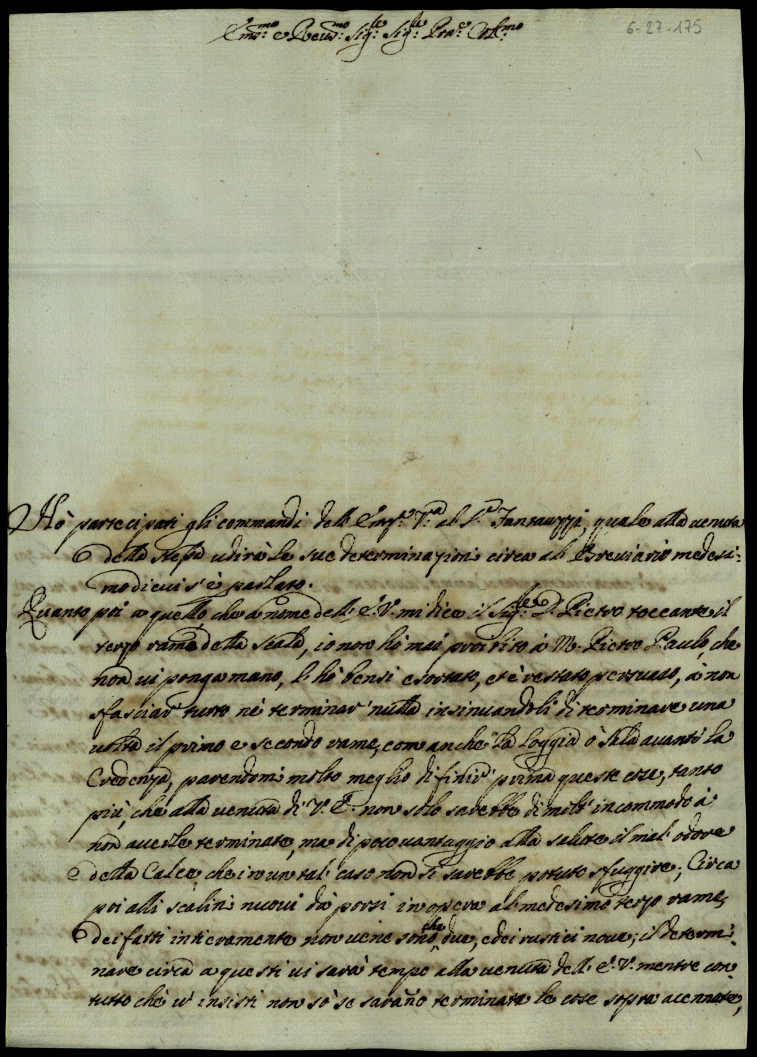 Em.mo e Reud.mo Sig.le Sig.le Pra.e Col.mo
6-27-175
Hò partecipati gli commandi dell Em.a V.ra al S.r Fantauzzi, quale alla venuta
della stessa udirà le sue determinazioni circa al Breviario medesi:
mo di cui s'è parlato.
Quanto poi a quello che a nome dell' E: V: mi dice il Sig.le D. Pietro toccante il
terzo rame della scala, io non hò mai proibito à M. Pietro Paulo, che
non vi ponga mano, li hò bensi esortato, et è restato persuaso, à non
sfasciar tutto nè terminar nulla insinuandoli di terminare una
volta il primo e secondo rame, com'anche la Loggia ò sala avanti la
Credenza, parendomi molto meglio di finir prima queste cose, tanto
più, che alla venuta di V. E. non solo sarebbe di molt' incommodo à
non averle terminate, ma di poco vantaggio alla salute il mal' odore
della Calce, che in un tal caso non si sarebbe potuto sfuggire; Circa
poi alli scalini nuovi da porsi in opera al medesimo terzo rame,
dei fatti intieramente non vene sono che due, e dei rustici nove; il determi:
nare circa a questi vi sarà tempo alla venuta dell' E: V: mentre con
tutto che v' insisti non sò se saranno terminate le cose sopra acennate,